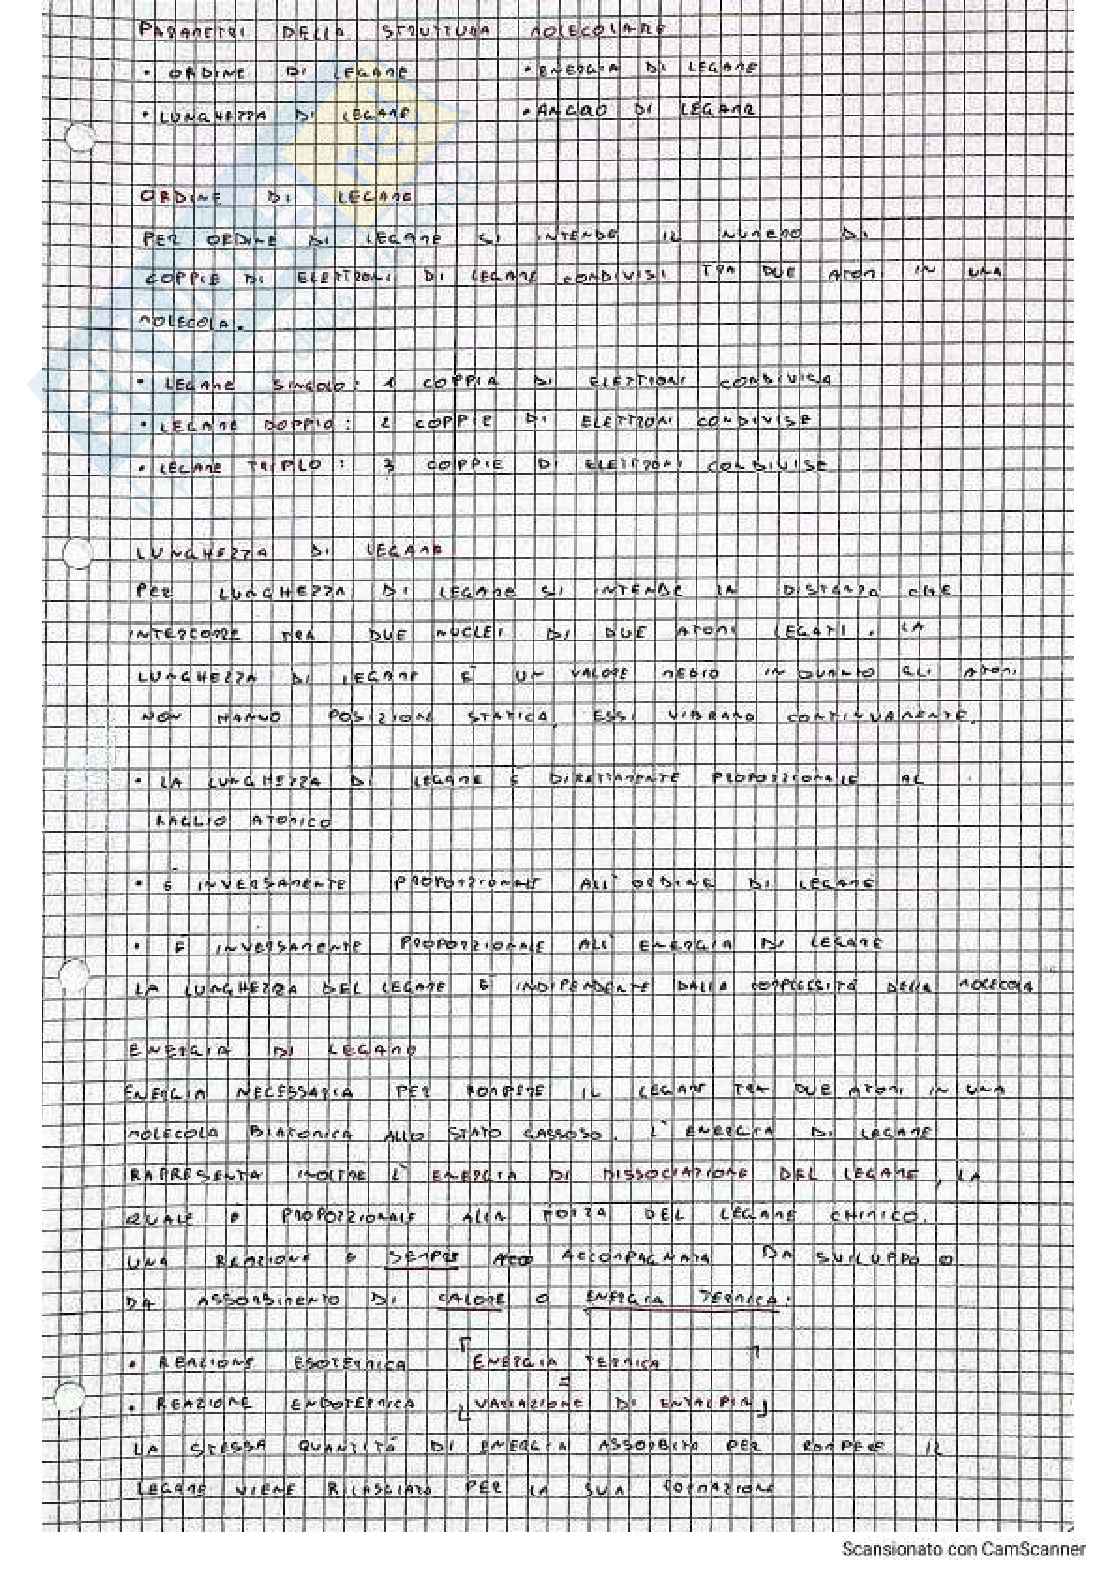 PARAMETRI DELLA STRUTTURA MOLECOLARE
• ORDINE DI LEGAME • ENERGIA DI LEGAME
• LUNGHEZZA DI LEGAME • ANGOLO DI LEGAME
ORDINE DI LEGAME
PER ORDINE DI LEGAME SI INTENDE IL NUMERO DI
COPPIE DI ELETTRONI DI LEGAME CONDIVISI TRA DUE ATOMI IN UNA
MOLECOLA.
• LEGAME SINGOLO: 1 COPPIA DI ELETTRONI CONDIVISA
• LEGAME DOPPIO: 2 COPPIE DI ELETTRONI CONDIVISE
• LEGAME TRIPLO: 3 COPPIE DI ELETTRONI CONDIVISE
LUNGHEZZA DI LEGAME
PER LUNGHEZZA DI LEGAME SI INTENDE LA DISTANZA CHE
INTERCORRE TRA DUE NUCLEI DI DUE ATOMI LEGATI. LA
LUNGHEZZA DI LEGAME È UN VALORE MEDIO IN QUANTO GLI ATOMI
NON HANNO POSIZIONE STATICA, ESSI VIBRANO CONTINUAMENTE.
• LA LUNGHEZZA DI LEGAME È DIRETTAMENTE PROPORZIONALE AL
RAGGIO ATOMICO
• È INVERSAMENTE PROPORZIONALE ALL'ORDINE DI LEGAME
• È INVERSAMENTE PROPORZIONALE ALL'ENERGIA DI LEGAME
LA LUNGHEZZA DEL LEGAME È INDIPENDENTE DALLA COMPLESSITÀ DELLA MOLECOLA
ENERGIA DI LEGAME
ENERGIA NECESSARIA PER ROMPERE IL LEGAME TRA DUE ATOMI IN UNA
MOLECOLA BIATOMICA ALLO STATO GASSOSO. L'ENERGIA DI LEGAME
RAPRESENTA INOLTRE L'ENERGIA DI DISSOCIAZIONE DEL LEGAME, LA
QUALE È PROPORZIONALE ALLA FORZA DEL LEGAME CHIMICO.
UNA REAZIONE È SEMPRE ACCOMPAGNATA DA SVILUPPO O
DA ASSORBIMENTO DI CALORE O ENERGIA TERMICA.
• REAZIONE ESOTERMICA [ENERGIA TERMICA]
=
• REAZIONE ENDOTERMICA [VARIAZIONE DI ENTALPIA]
LA STESSA QUANTITÀ DI ENERGIA ASSORBITA PER ROMPERE IL
LEGAME VIENE RILASCIATA PER LA SUA FORMAZIONE
Scansionato con CamScanner